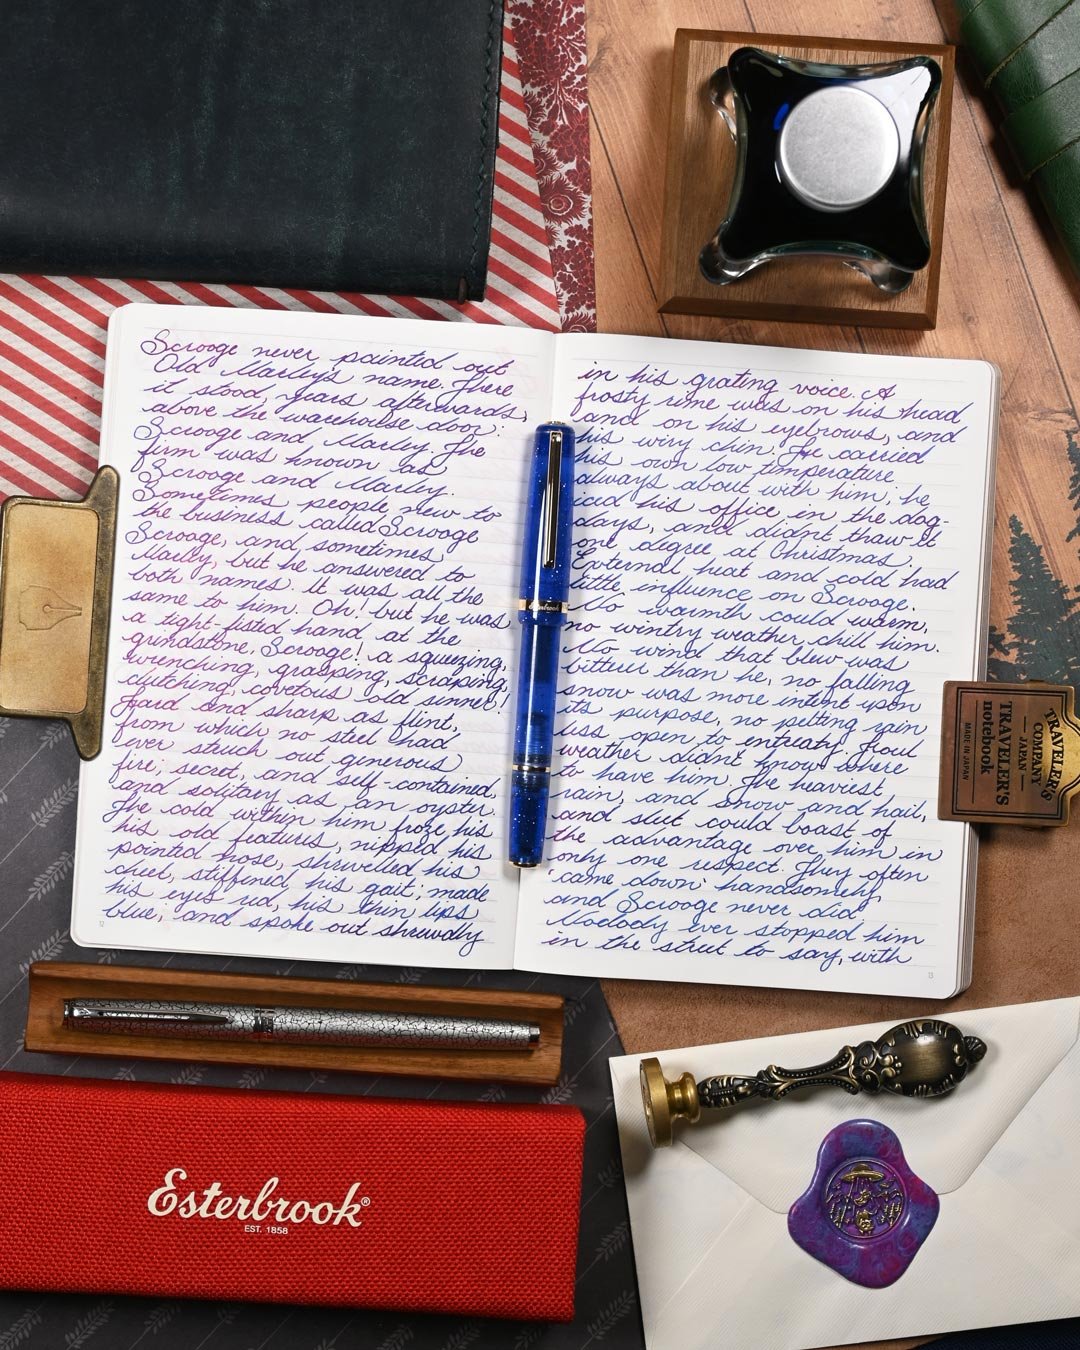 Scrooge never painted out
Old Marley's name. There
it stood, years afterwards,
above the warehouse door:
Scrooge and Marley. The
firm was known as
Scrooge and Marley.
Sometimes people new to
the business called Scrooge
Scrooge, and sometimes
Marley, but he answered to
both names. It was all the
same to him. Oh! but he was
a tight-fisted hand at the
grindstone, Scrooge! a squeezing,
wrenching, grasping, scraping,
clutching, covetous old sinner!
Hard and sharp as flint,
from which no steel had
ever struck out generous
fire; secret, and self-contained,
and solitary as an oyster.
The cold within him froze his
his old features, nipped his
pointed nose, shrivelled his
cheek, stiffened his gait; made
his eyes red, his thin lips
blue, and spoke out shrewdly
12
in his grating voice. A
frosty rime was on his head
and on his eyebrows, and
his wiry chin. He carried
his own low temperature
always about with him; he
iced his office in the dog-
days, and didn't thaw it
one degree at Christmas.
External heat and cold had
little influence on Scrooge.
No warmth could warm,
no wintry weather chill him.
No wind that blew was
bitterer than he, no falling
snow was more intent upon
its purpose, no pelting rain
less open to entreaty. Foul
weather didn't know where
to have him. The heaviest
rain, and snow and hail,
and sleet could boast of
the advantage over him in
only one respect. They often
'came down' handsomely,
and Scrooge never did
Nobody ever stopped him
in the street to say, with
13
Esterbrook
TRAVELER'S
COMPANY
JAPAN
TRAVELER'S
notebook
MADE IN JAPAN
Esterbrook®
EST. 1858